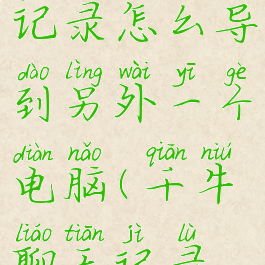 记录怎么导
dào lìng wài yī gè
到另外一个
diàn nǎo qiān niú
电脑(千牛
liáo tiān jì lù
聊天记录